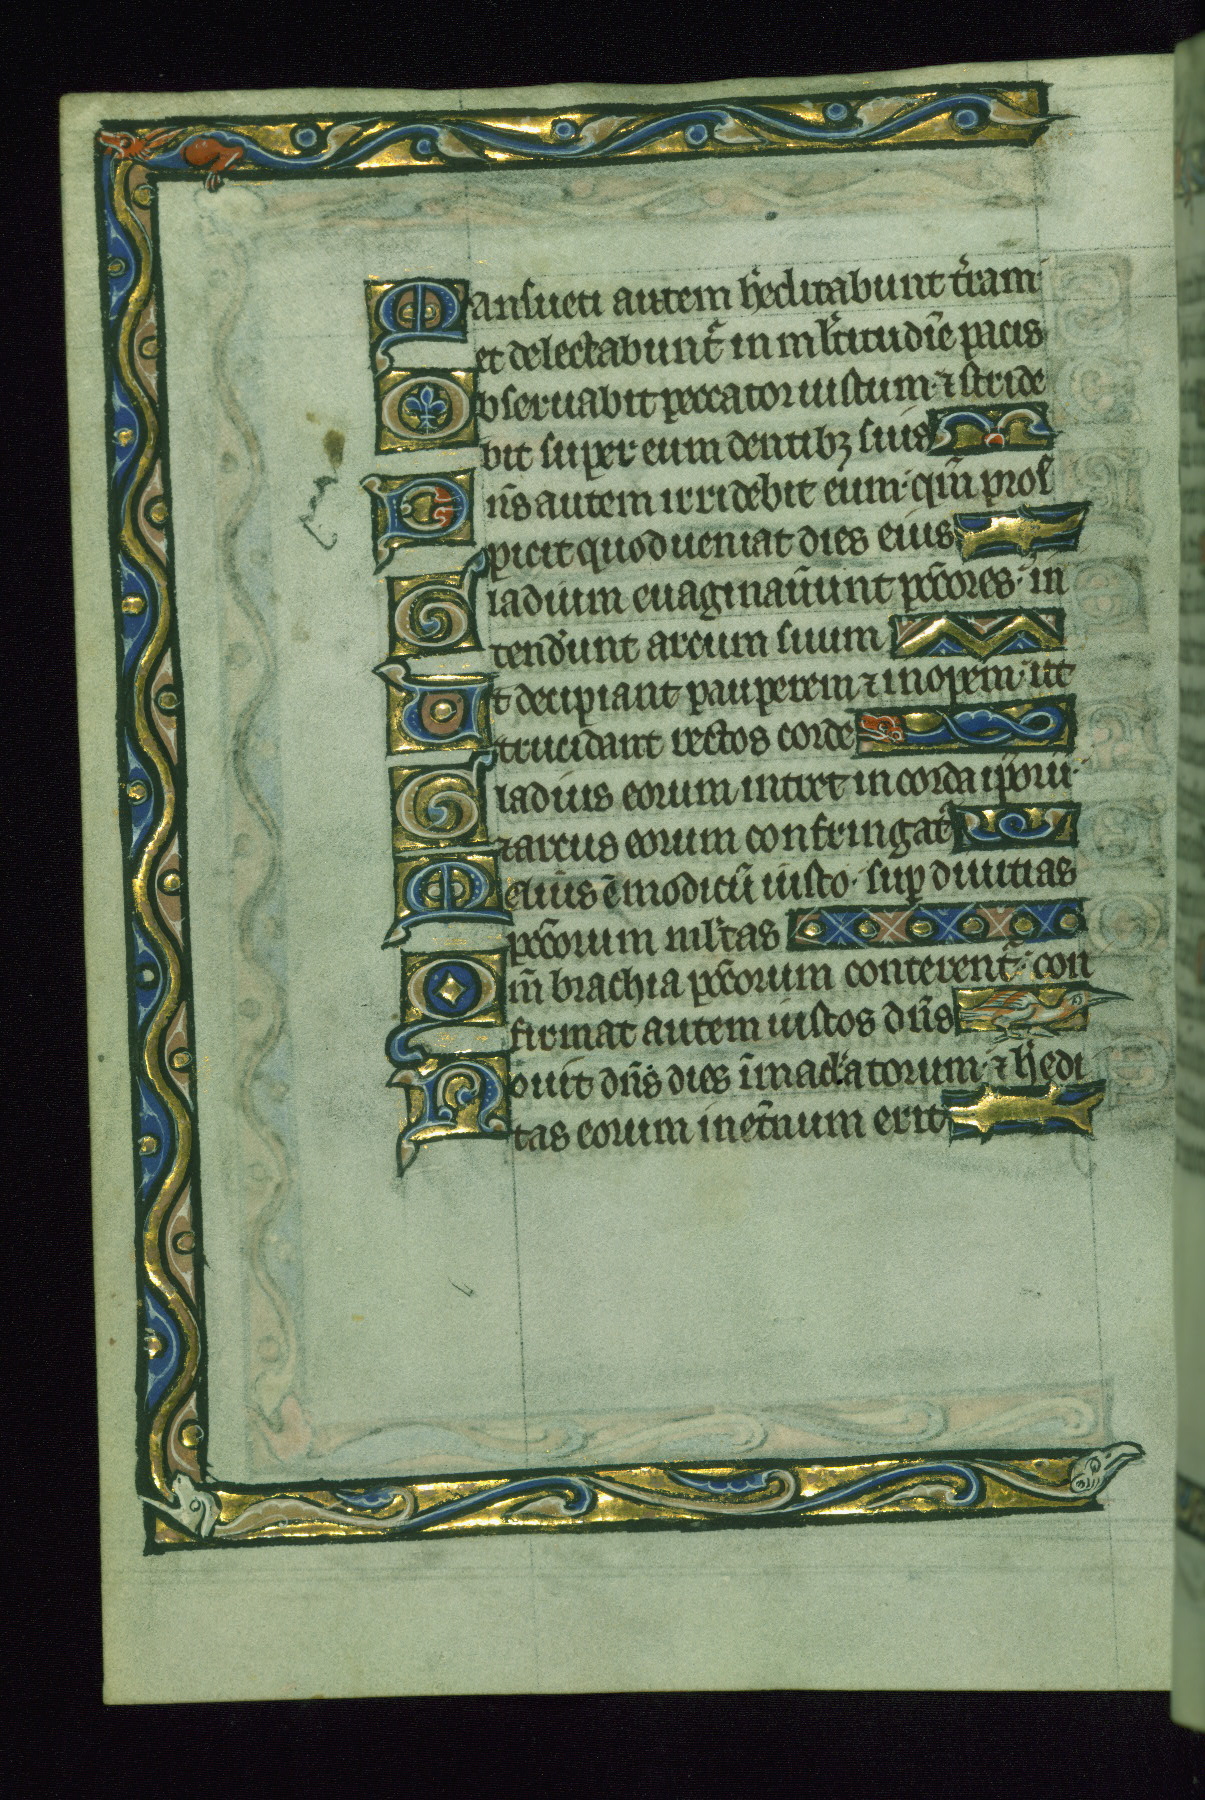 Mansueti autem h̾editabunt t̾ram·
et delectabunt̾ in ml̾titudīe pacis
Obseruabit peccator iustum· ⁊ stride
bit super eum dentibꝫ suis
Dn̄s autem irridebit eum· qm̄ pros
picit quod ueniat dies eius
Gladium euaginau̾unt pc̄cores· in
tend̾unt arcum suum
Ut decipiant pauperem ⁊ inopem· ut
trucidant rectos corde
Gladius eorum intret in corda ip̄orū·
⁊ arcus eorum confringat̾
Melius ē modicū iusto· suꝑ diuitias
pc̄corum ml̾tas
Qm̄ brachia pc̄corum conterent̾· con
firmat autem iustos dn̄s
Nouit dn̄s dies īmaclatorum· ⁊ h̾edi
tas eorum in et̾num erit